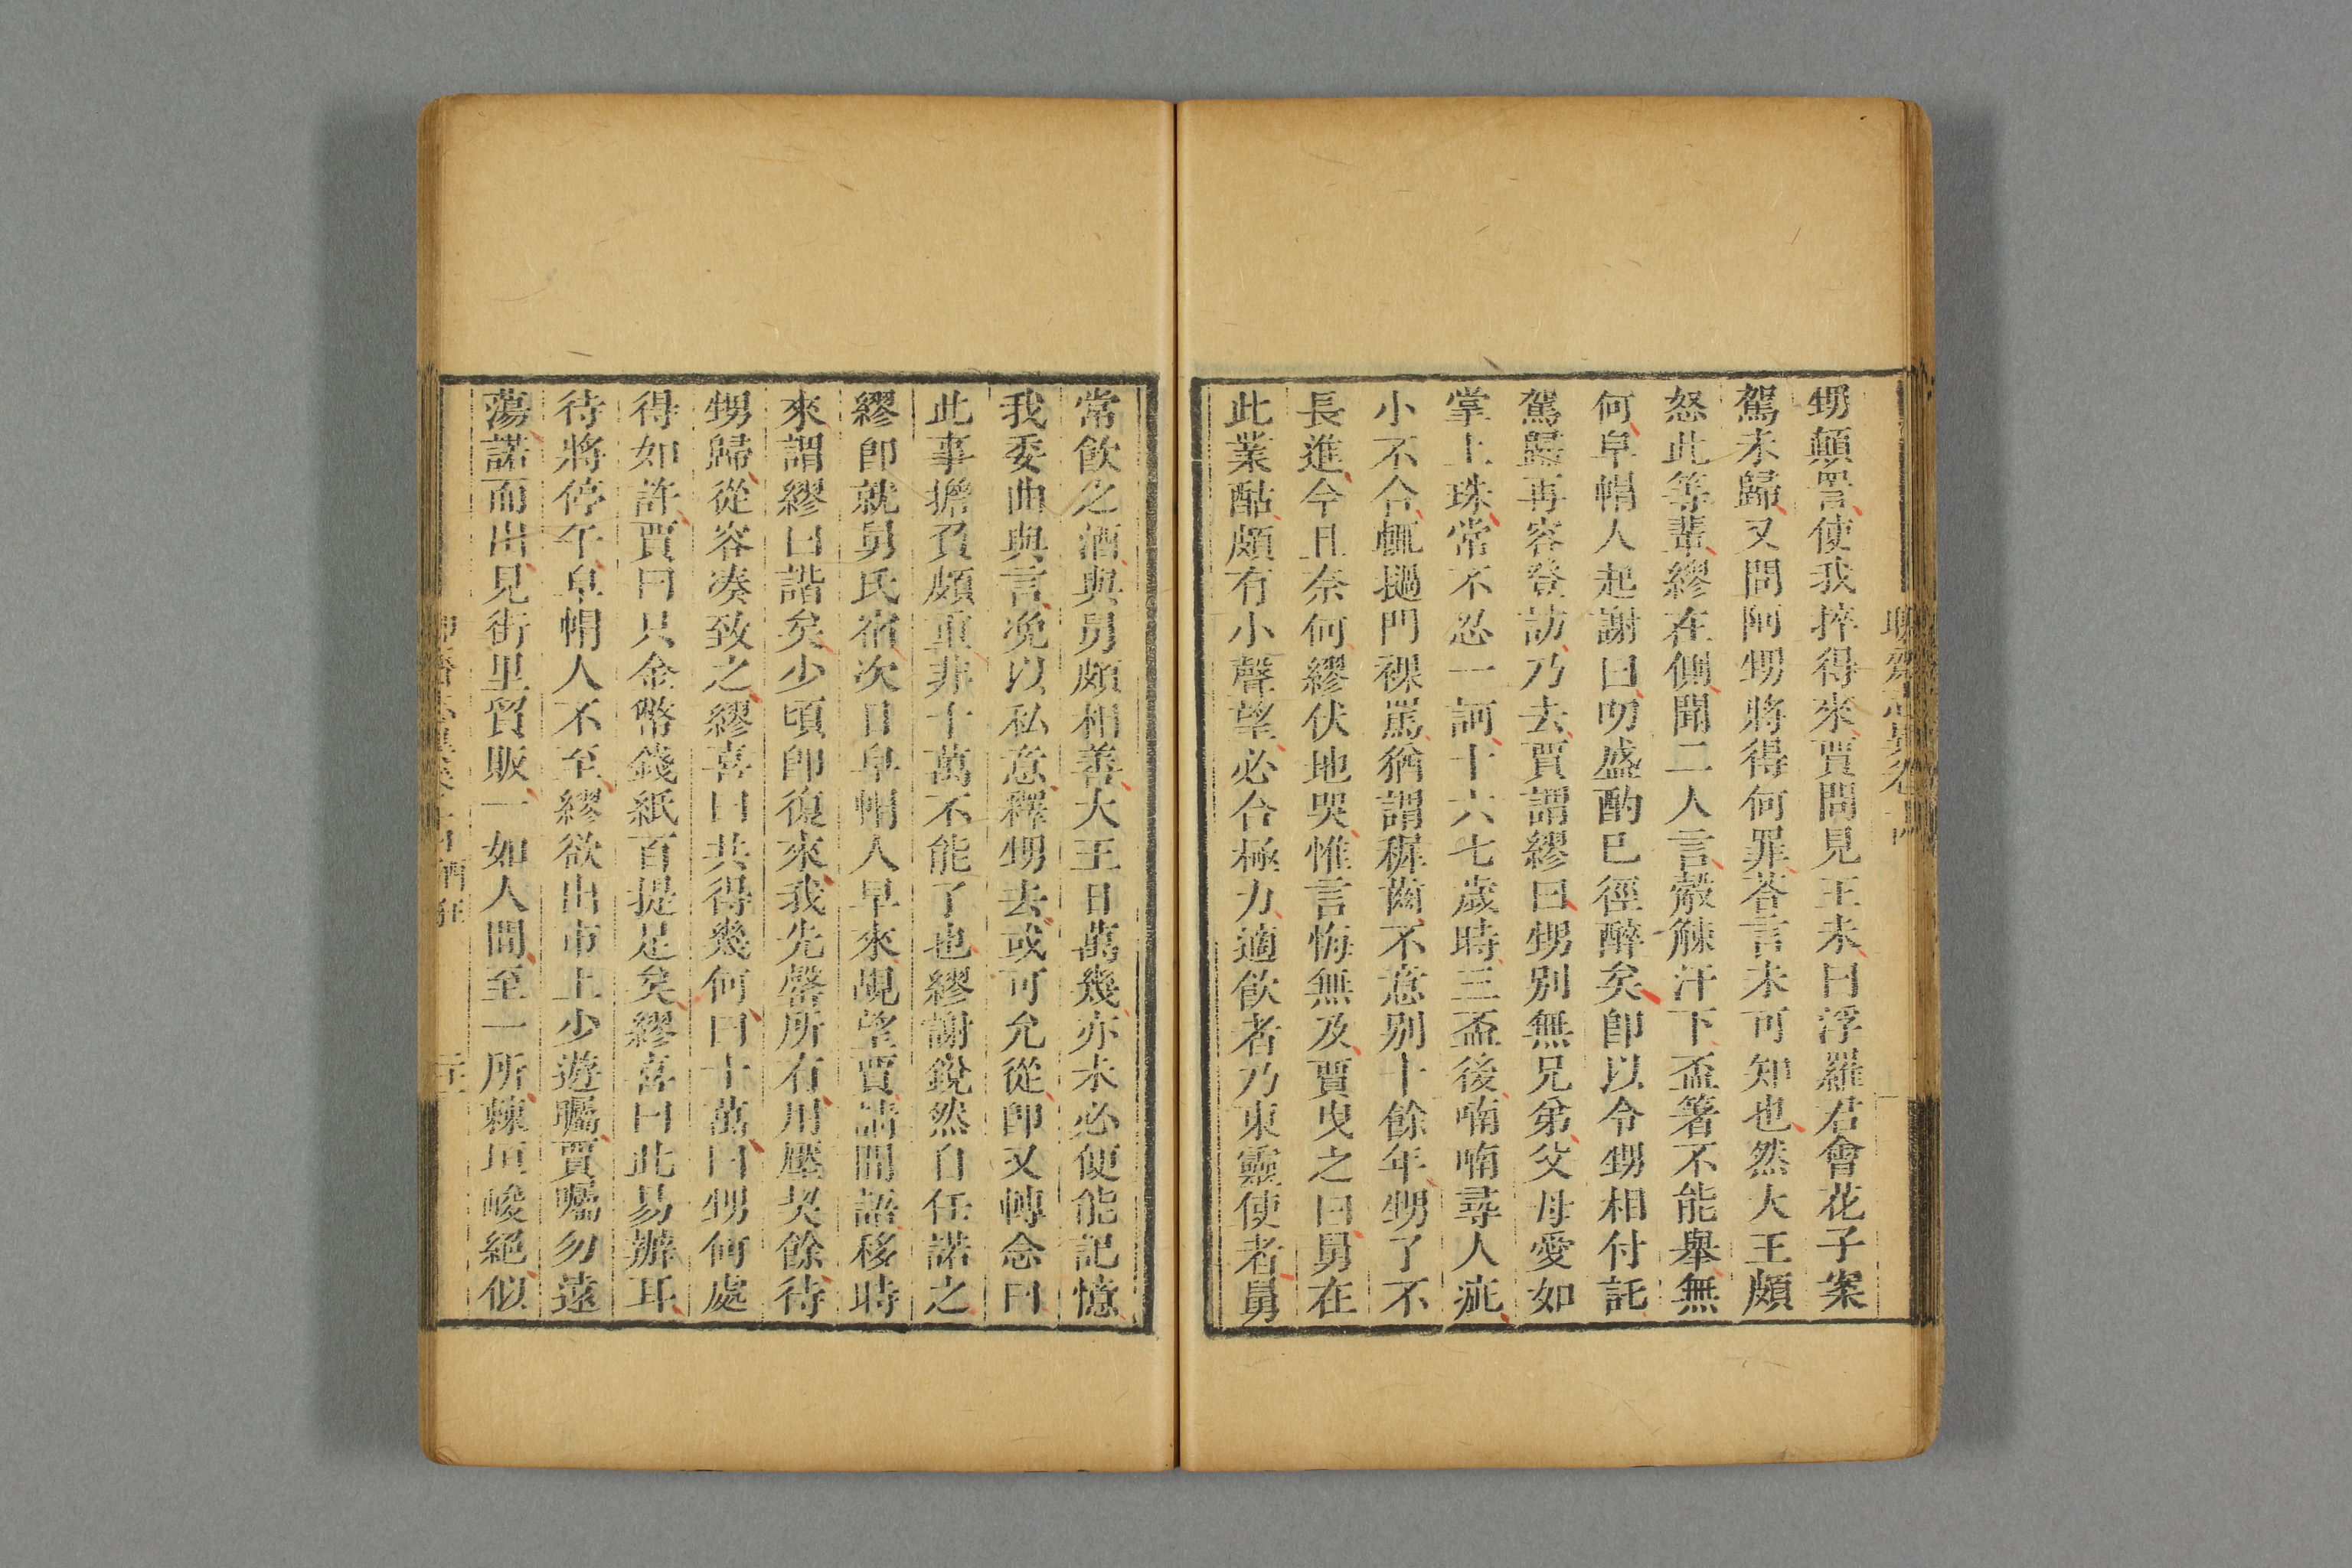 甥顛詈使我捽得來賈問見王未曰浮羅君會花子案
駕未歸又問阿甥將得何罪荅言未可知也然大王頗
怒此等輩繆在側聞二人言觳觫汗下盃箸不能舉無
何皁帽人起謝曰叨盛酌已徑醉矣即以令甥相付託
駕歸再容登訪乃去賈謂繆曰甥別無兄弟父母愛如
掌上珠常不忍一訶十六七歲時三盃後喃喃尋人疵
小不合輒撾門裸罵猶謂穉齒不意別十餘年甥了不
長進今且奈何繆伏地哭惟言悔無及賈曳之曰舅在
此業酤頗有小聲望必合極力適飲者乃東靈使者舅
常飲之酒與舅頗相善大王日萬幾亦未必便能記憶
我委曲與言浼以私意釋甥去或可允從即又轉念曰
此事擔負頗重非十萬不能了也繆謝銳然自任諾之
繆即就舅氏宿次日皁帽人早來覘望賈請間語移時
來謂繆曰諧矣少頃即復來我先罄所有用壓契餘待
甥歸從容凑致之繆喜曰共得幾何曰十萬曰甥何處
得如許賈曰只金幣錢紙百提足矣繆喜曰此易辦耳
待將停午皁帽人不至繆欲出市上少遊矚賈囑勿遠
蕩諾而出見街里貿販一如人間至一所棘垣峻絕似